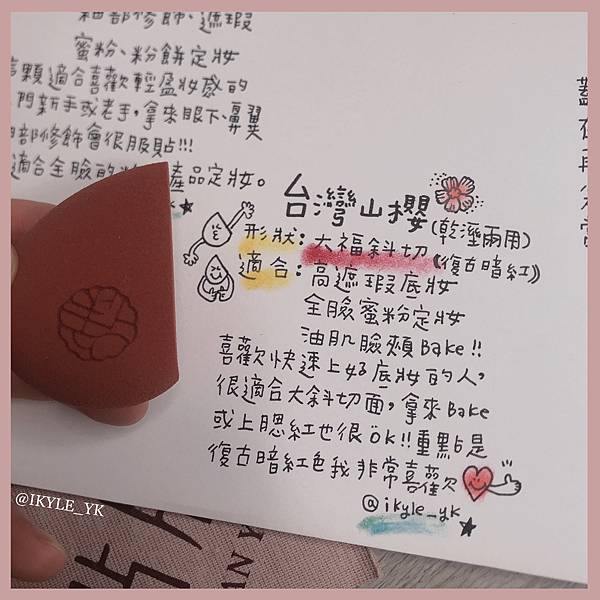 細部修飾、遮瑕
蜜粉、粉餅定妝
顆適合喜歡輕盈妝感的
門新手或老手,拿來眼下、鼻翼
部修飾會很服貼!!!
適合全臉的 產品定妝。
台灣山櫻(乾溼兩用)
形狀:大福斜切《復古暗紅》
適合:高遮瑕底妝
全臉蜜粉定妝
油肌臉頰Bake!!
喜歡快速上好底妝的人,
很適合大斜切面,拿來Bake
或上腮紅也很OK!!重點是
復古暗紅色我非常喜歡
@ikyle_yk
@IKYLE_YK